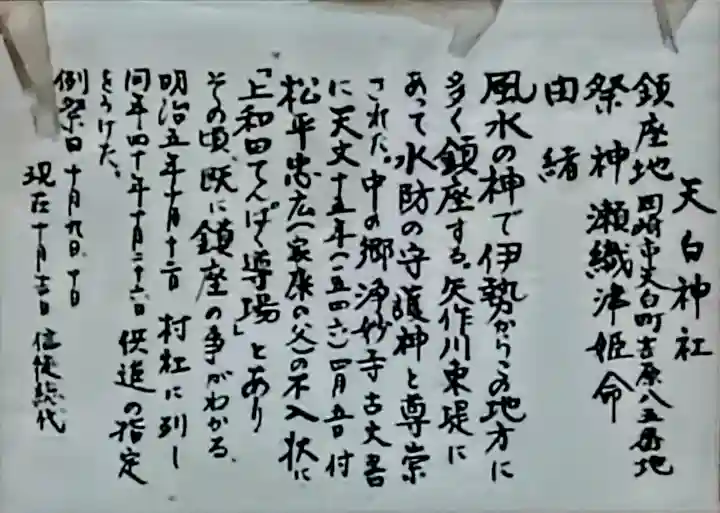 天白神社
鎮座地 岡崎市天白町吉原八五番地
祭神 瀬織津姫命
由緒
風水の神で伊勢からこの地方に
多く鎮座する。矢作川東堤に
あって水防の守護神と尊崇
された。中の郷浄妙寺古文書
に天文十五年(一五四六)四月五日付
松平忠広(家康の父)の不入状に
「上和田てんぱく導場」とあり
その頃、既に鎮座の事がわかる。
明治五年十月十二日 村社に列し
同年四十年十月二十六日 供進の指定
をうけた。
例祭日 十月九日、十日
現在 十月 日 信徒総代